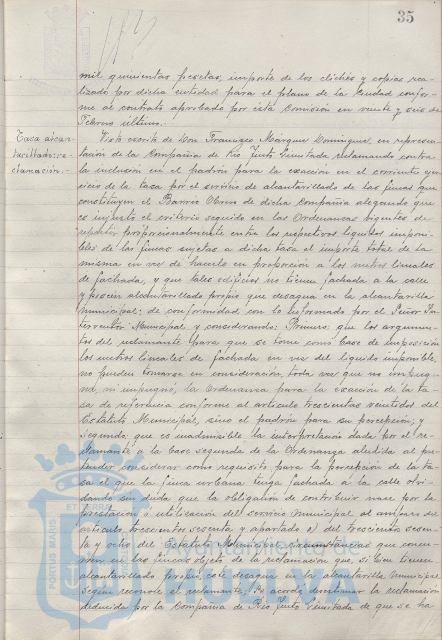 35
mil quinientas pesetas, importe de los clichés y copias rea-
lizado por dicha entidad para el plano de la Ciudad confor-
me al contrato aprobado por esta Comisión en veinte y seis de
Febrero último.
Tasa alcan-
tarillado: re-
clamación.-
Visto escrito de Don Francisco Márquez Domínguez, en represen-
tación de la Compañía de Rio Tinto Limitada, reclamando contra
la inclusión en el padrón para la exacción en el corriente ejer-
cicio de la tasa por el servicio de alcantarillado de las fincas que
constituyen el Barrio Obrero de dicha Compañía alegando que
es injusto el criterio seguido en las Ordenanzas vigentes de
repartir proporcionalmente entre los respectivos líquidos imponi-
bles de las fincas sujetas a dicha tasa el importe total de la
misma en vez de hacerlo en proporción a los metros lineales
de fachada, y que tales edificios no tienen fachada a la calle
y poseen alcantarillado propio que desagua en la alcantarilla
municipal; de conformidad con lo informado por el Señor In-
terventor Municipal y considerando: Primero: que los argumen-
tos del reclamante para que se tome como base de imposición
los metros lineales de fachada en vez del líquido imponible,
no pueden tomarse en consideración, toda vez que no impug-
na, ni impugnó, la Ordenanza para la exacción de la ta-
sa de referencia conforme al artículo trescientos veintidos del
Estatuto Municipal, sino el padrón para su percepción; y
Segundo: que es inadmisible la interpretación dada por el re-
clamante a la base segunda de la Ordenanza aludida al pre-
tender considerar como requisito para la percepción de la ta-
sa el que la finca urbana tenga fachada a la calle olvi-
dando sin duda que la obligación de contribuir nace por la
prestación o utilización del servicio municipal al amparo del
artículo trescientos sesenta y apartado e) del trescientos sesen-
ta y ocho del Estatuto Municipal, circunstancias que concu-
rren en las fincas objeto de la reclamación que si bien tienen
alcantarillado propio, este desagua en la alcantarilla municipal
según reconoce el reclamante, se acordó desestimar la reclamación
deducida por la Compañía de Rio Tinto Limitada de que se ha
PORTUS MARIS ET TERRAE
Ayuntamiento de
HUELVA